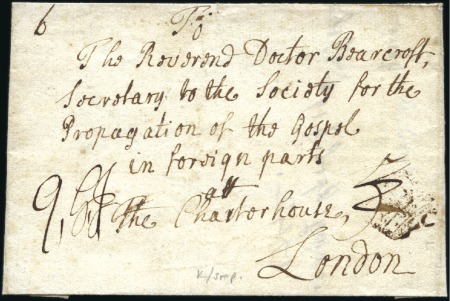 6
To
The Reverend Doctor Bearcroft,
Secretary to the Society for the
Propagation of the Gospel
in foreign parts
att
the Charterhouse,
London